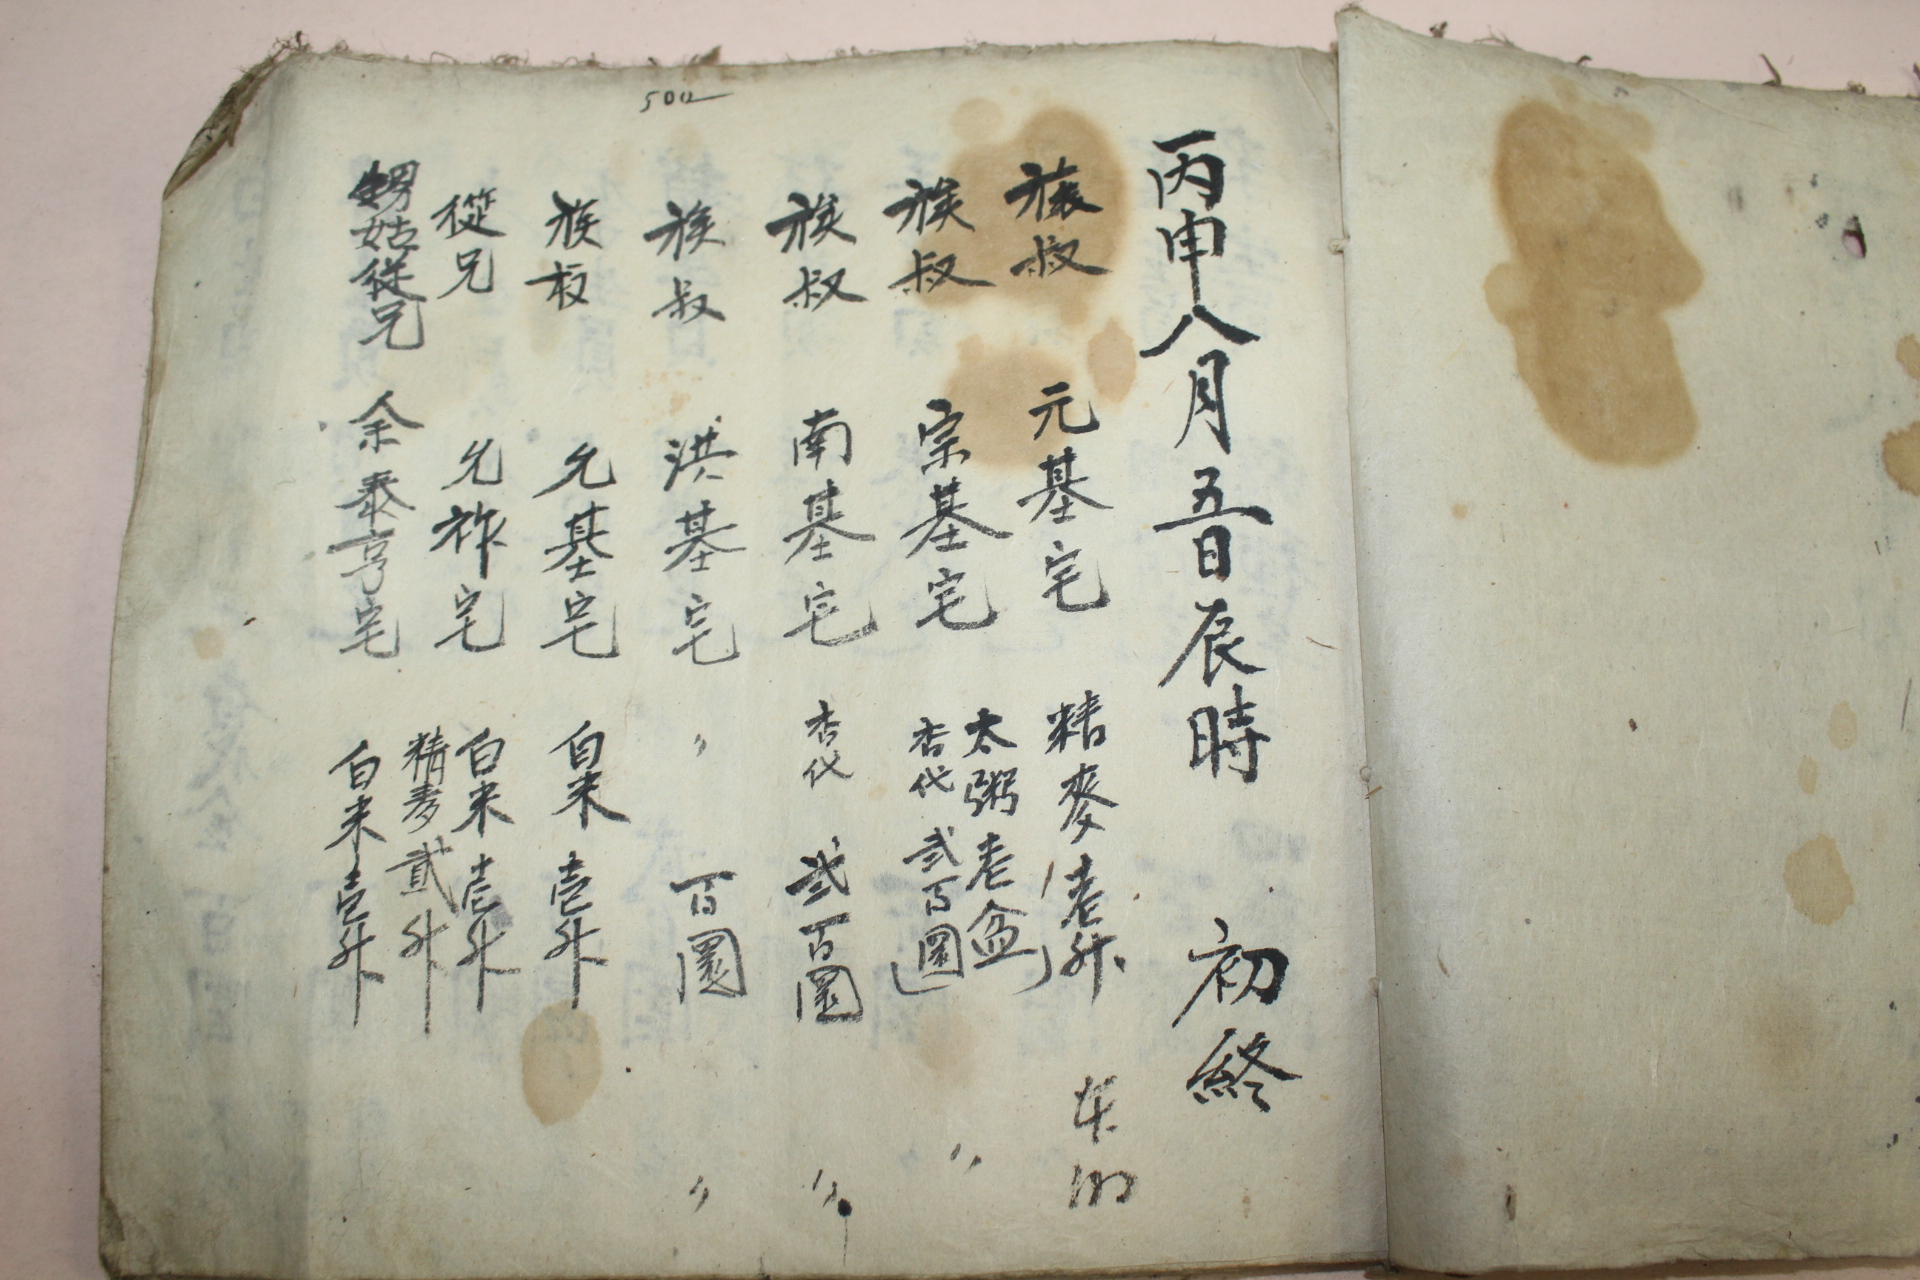 500
丙申八月五日辰時 初終
族叔 元基宅 精麥壱升 本洞
族叔 宗基宅 太粥壱盆 杏代弍百圜 〃
族叔 南基宅 杏代 弍百圜 〃
族叔 洪基宅 〃 百圜 〃
族叔 允基宅 白米壱升
從兄 允祚宅 白米壱升 精麥貳升
甥姑從兄 余泰亨宅 白米壱升